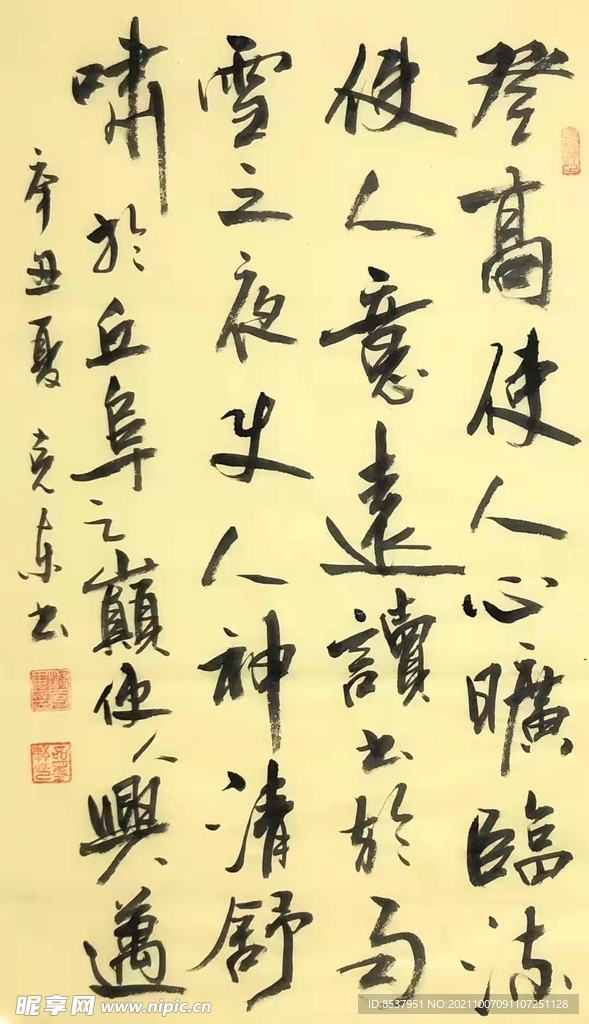 登高使人心曠臨流
使人意遠讀書於雨
雪之夜使人神清舒
嘯於丘阜之巔使人興邁
辛丑夏 克東書
昵享网 www.nipic.cn
ID:8537951 NO:20211007091107251128